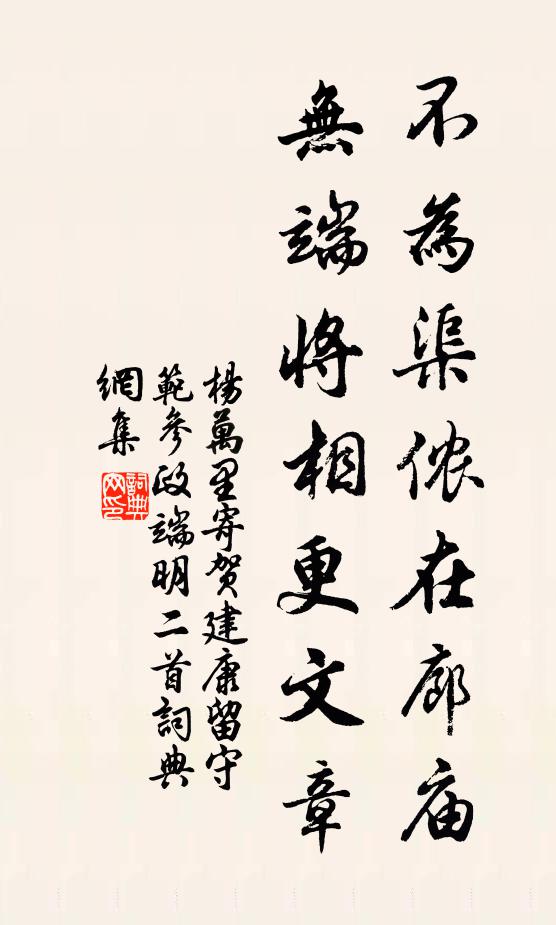 不為渠侬在廊庙
無端將相更文章
楊萬里寄贺建康留守
範参政端明二首詞典
網集
詞典
网印